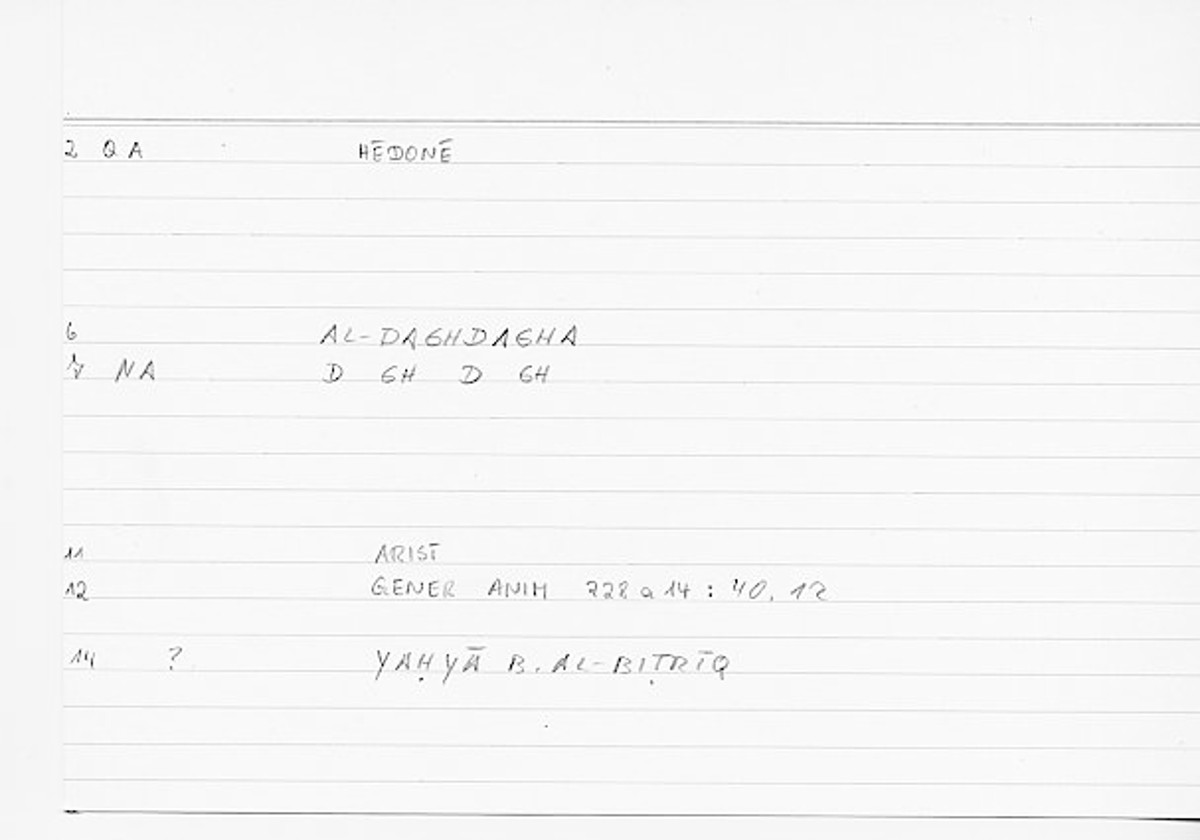 2 Q A HĒDONĒ
6 AL-DAGHDAGHA
7 N A D GH D GH
11 ARIST
12 GENER ANIM 728 a 14 : 40. 12
14 ? YAḤYĀ B. AL-BIṬRĪQ